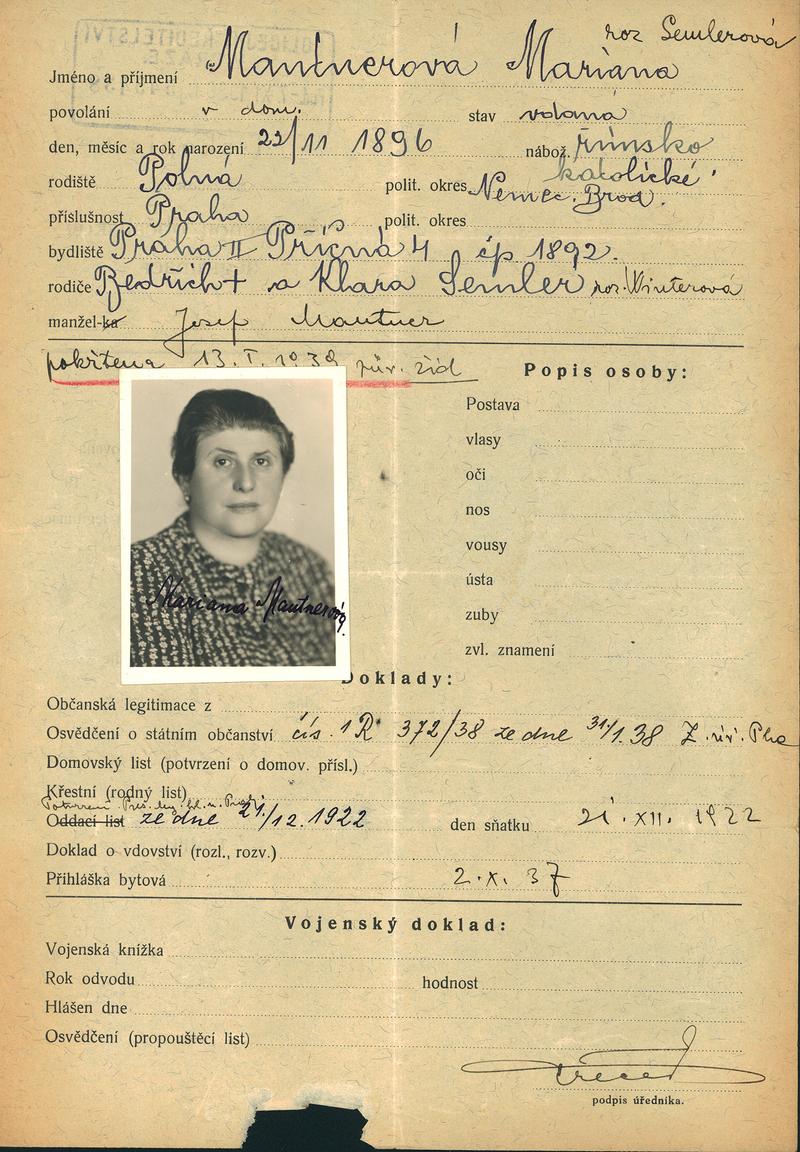 roz Semlerová
Jméno a příjmení Mautnerová Mariana
povolání v dom. stav vdaná
den, měsíc a rok narození 22/11 1896 nábož. římsko
katolické
rodiště Polná polit. okres Němec. Brod.
příslušnost Praha polit. okres
bydliště Praha II Příčná 4 čp 1892.
rodiče Bedřich + a Klara Semler roz. Winterová
manžel-ka Josef Mautner
pokřtena 13. I. 1939 pův. žid
Popis osoby:
Postava
vlasy
oči
nos
vousy
ústa
zuby
zvl. znamení
Mariana Mautnerová.
Doklady:
Občanská legitimace z
Osvědčení o státním občanství čís. 1R 372/38 ze dne 31/1.38 Z. úř. Pha
Domovský list (potvrzení o domov. přísl.)
Křestní (rodný list)
Potvrzení
Oddací list ze dne 21/12. 1922 den sňatku 21. XII. 1922
Doklad o vdovství (rozl., rozv.)
Přihláška bytová 2. X. 37
Vojenský doklad:
Vojenská knížka
Rok odvodu hodnost
Hlášen dne
Osvědčení (propouštěcí list)
podpis úředníka.